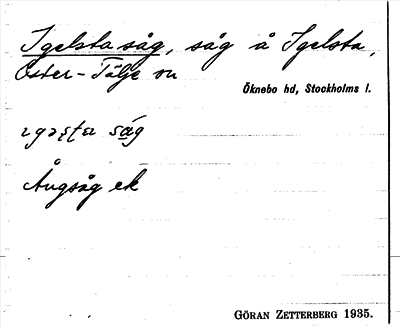 Igelsta såg, såg å Igelsta,
Öster-Tälje sn
Öknebo hd, Stockholms l.
såg
Ångsåg ek
GÖRAN ZETTERBERG 1935.